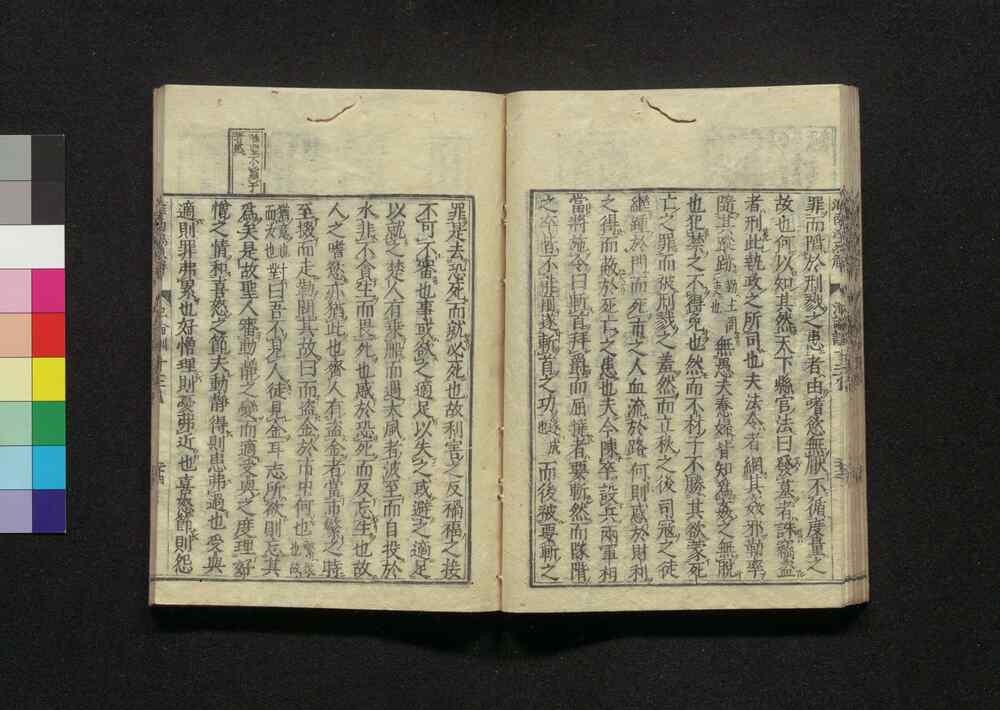 罪而陷於刑戮之患者由嗜慾無厭不循度量之
故也何以知其然天下縣官法曰發墓者誅竊盜
者刑此執政之所司也夫法令者網其姦邪勒率
隨其蹤跡無愚夫惷婦皆知為姦之無脫
也犯禁之不得免也然而不材子不勝其欲蒙死
亡之罪而被刑戮之羞然而立秋之後司寇之徒
繼踵於門而死市之人血流於路何則惑於財利
之得而蔽於死亡之患也夫今陳卒設兵兩軍相
當將施令曰斬首拜爵而屈撓者要斬然而隊階
之卒皆不能前遂斬首之功而後被要斬之
罪是去恐死而就必死也故利害之反禍福之接
不可不審也事或欲之適足以失之或避之適足
以就之楚人有乘船而遇大風者波至而自投於
水非不貪生而畏死也惑於恐死而反忘生也故
人之嗜慾亦猶此也齊人有盜金者當市繁之時
至掇而走勒問其故曰而盜金於市中何也
對曰吾不見人徒見金耳志所欲則忘其
為矣是故聖人審動靜之變而適受與之度理好
憎之情和喜怒之節夫動靜得則患弗過也受與
適則罪弗累也好憎理則憂弗近也喜怒節則怨